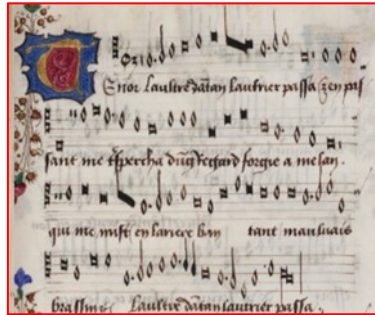 Enor Laultre dantan lautrier passa Et en pas
sant me tspercha dung regard forgie a melan.
qui me mist en lariere ban tant mauluais
brassin Laultre dantan lautrier passa.